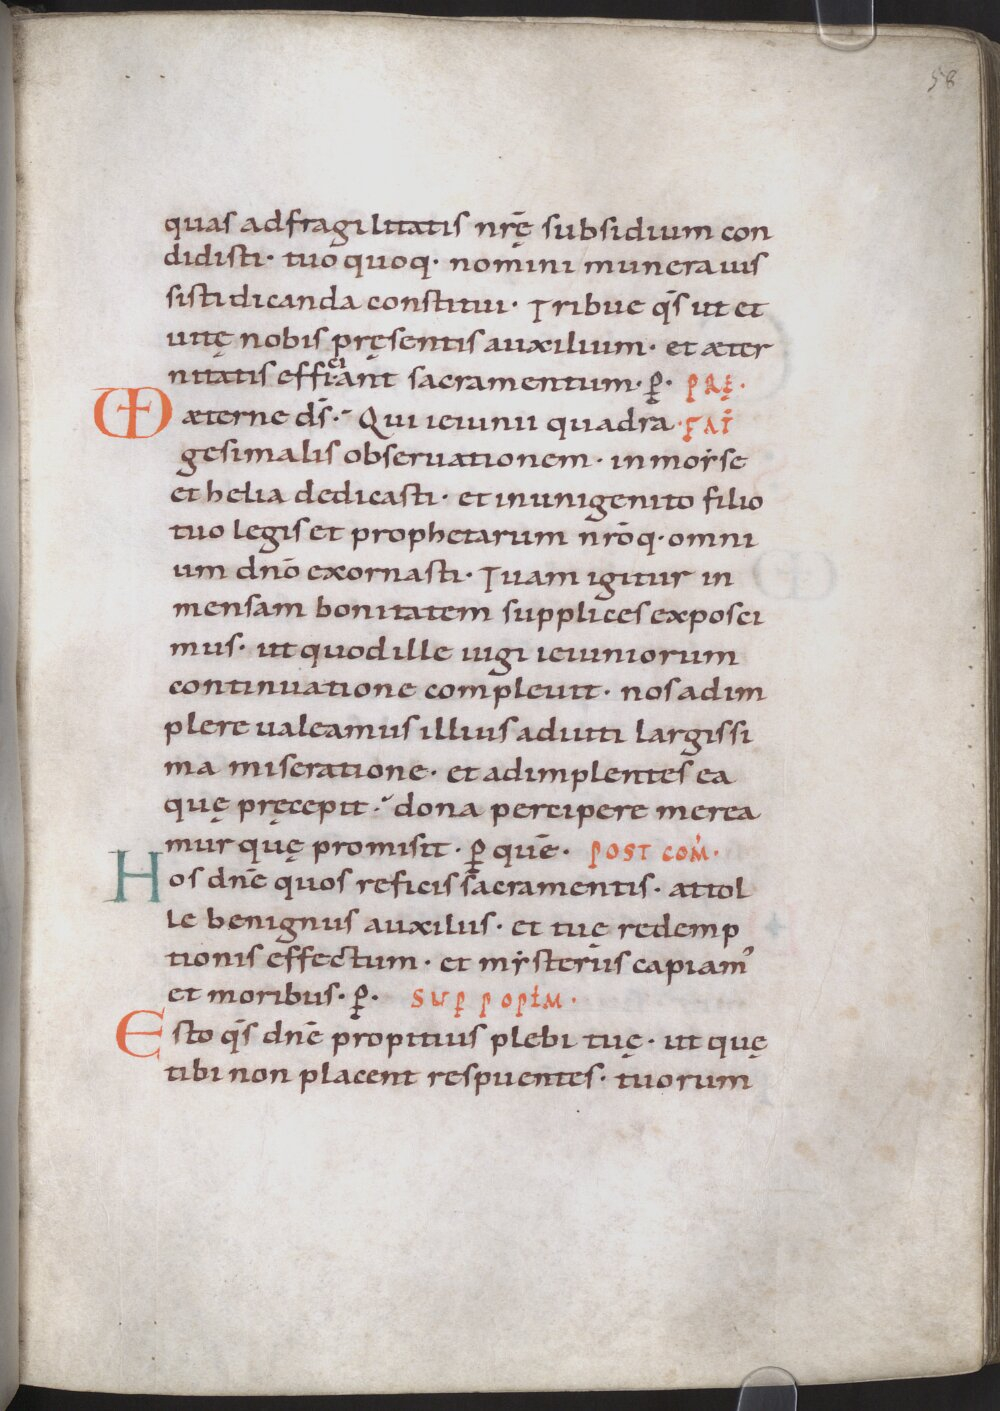 58
quas adfragilitatis nrę̄ subsidium con
didisti· tuo quoq· nomini munera uis
sisti dicanda constitui· Tribue qs̄ ut et
uitę nobis pręsentis auxilium· et æter
nitatis effieiant sacramentum· p̄· PRĘ·
æterne ds̄· Qui ieiunii quadra FAT̄
gesimalis obseruationem· in moẏse
et helia dedicasti· et in unigenito filio
tuo legis et prophetarum nrōq· omni
um dnō exornasti· Tuam igitur in
mensam bonitatem supplices exposci
mus· ut quod ille iugi ieiuniorum
continuatione compleuit· nos adim
plere ualeamus illius adiuti largissi
ma miseratione· et adimplentes ea
quę pręcepit· dona percipere merea
mur quę promisit· p̄ quē· POST COM̄·
Hos dnē quos reficis sacramentis· attol
le benignus auxiliis· et tuę redemp
tionis effectum· et mẏsteriis capiam'
et moribus· p̄· SUP POPLM·
Esto qs̄ dnē propitius plebi tuę· ut quę
tibi non placent respuentes· tuorum